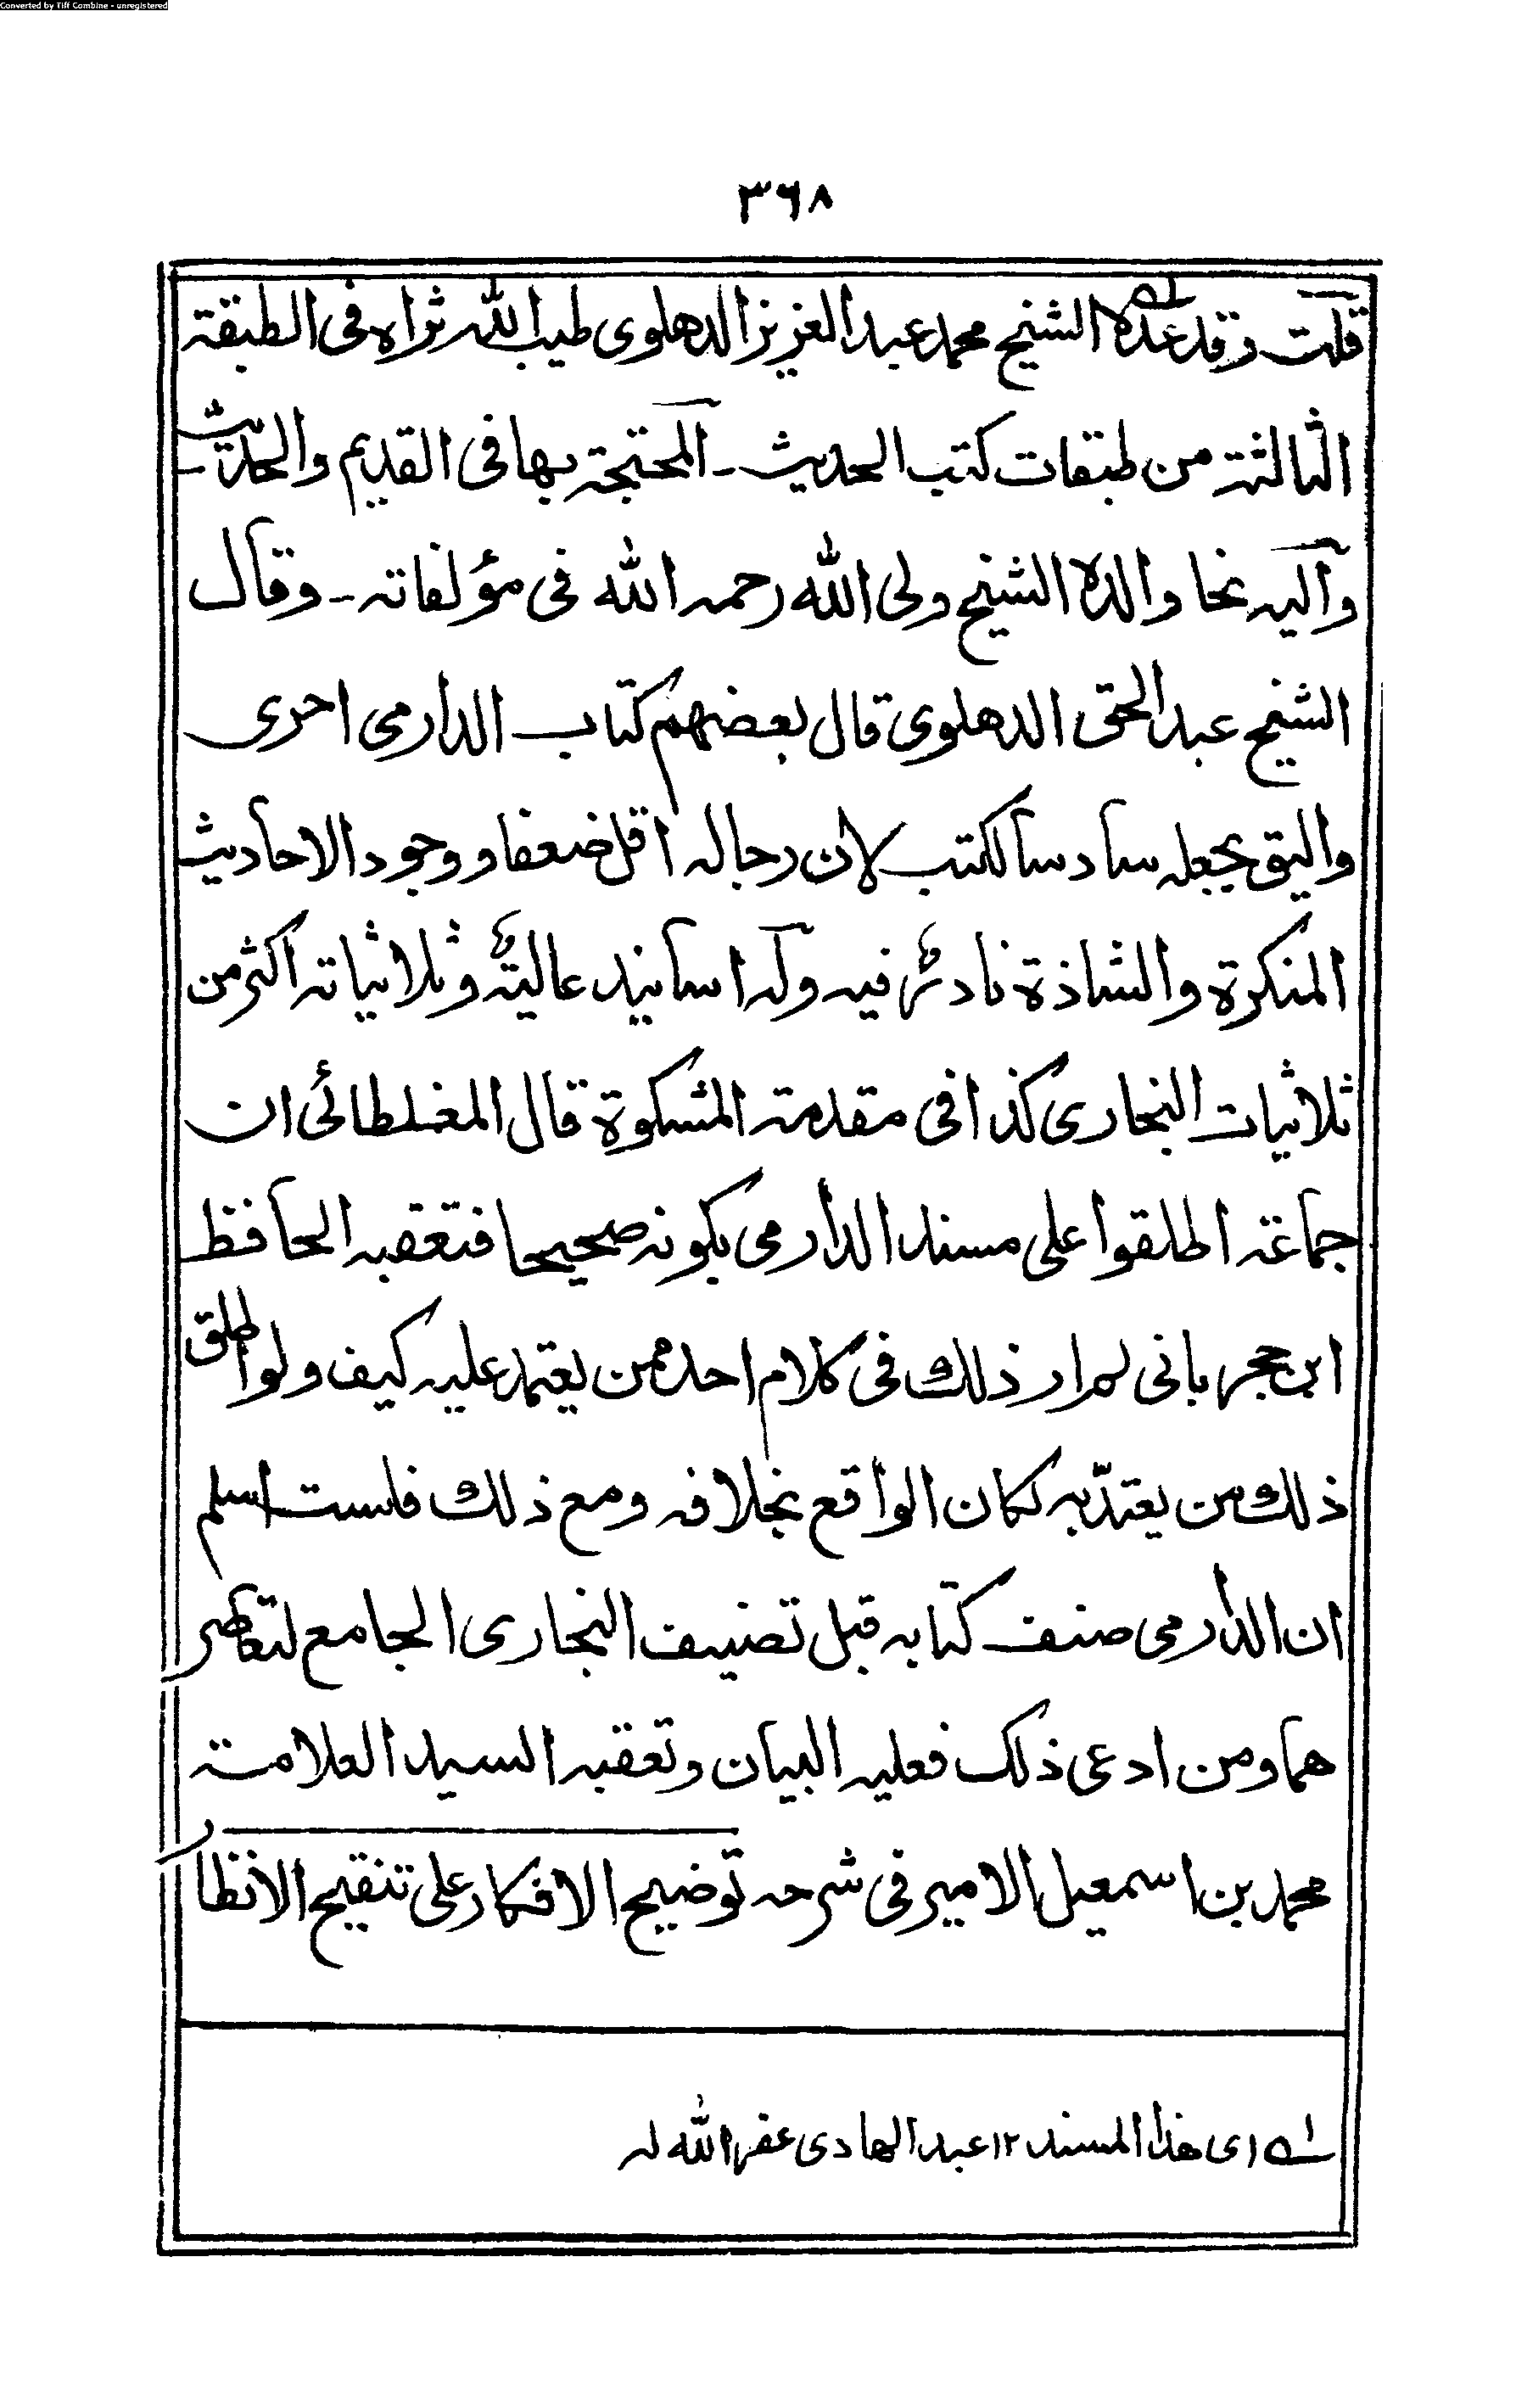 Converted by Tiff Combine - unregistered
۳۶۸
قلت وقد عده الشيخ محمد عبد العزيز الدهلوى طيب الله ثراه فى الطبقة
الثالثة من طبقات كتب الحديث - المحتجة بها فى القديم والحديث -
واليه نحا والده الشيخ ولى الله رحمه الله فى مؤلفاته - وقال
الشيخ عبد الحق الدهلوى قال بعضهم كتاب الدارمى احرى
واليق بجعله سادسا لكتب لان رجاله اقل ضعفا ووجود الاحاديث
المنكرة والشاذة نادر فيه وله اسانيد عالية وثلاثياته اكثر من
ثلاثيات البخارى كذا فى مقدمة المشكوة قال المغلطائى ان
جماعة اطلقوا على مسند الدارمى بكونه صحيحا فتعقبه الحافظ
ابن حجر بانى لم ار ذلك فى كلام احد ممن يعتمد عليه كيف ولو اطلق
ذلك من يعتدّ به لكان الواقع بخلافه ومع ذلك فلست اسلم
ان الدارمى صنف كتابه قبل تصنيف البخارى الجامع لتعاصر
هما ومن ادعى ذلك فعليه البيان وتعقبه السيد العلامة
محمد بن اسمعيل الامير فى شرحه توضيح الافكار على تنقيح الانظار
لـه اى هذا المسند ۱۲ عبد الهادى غفر الله له